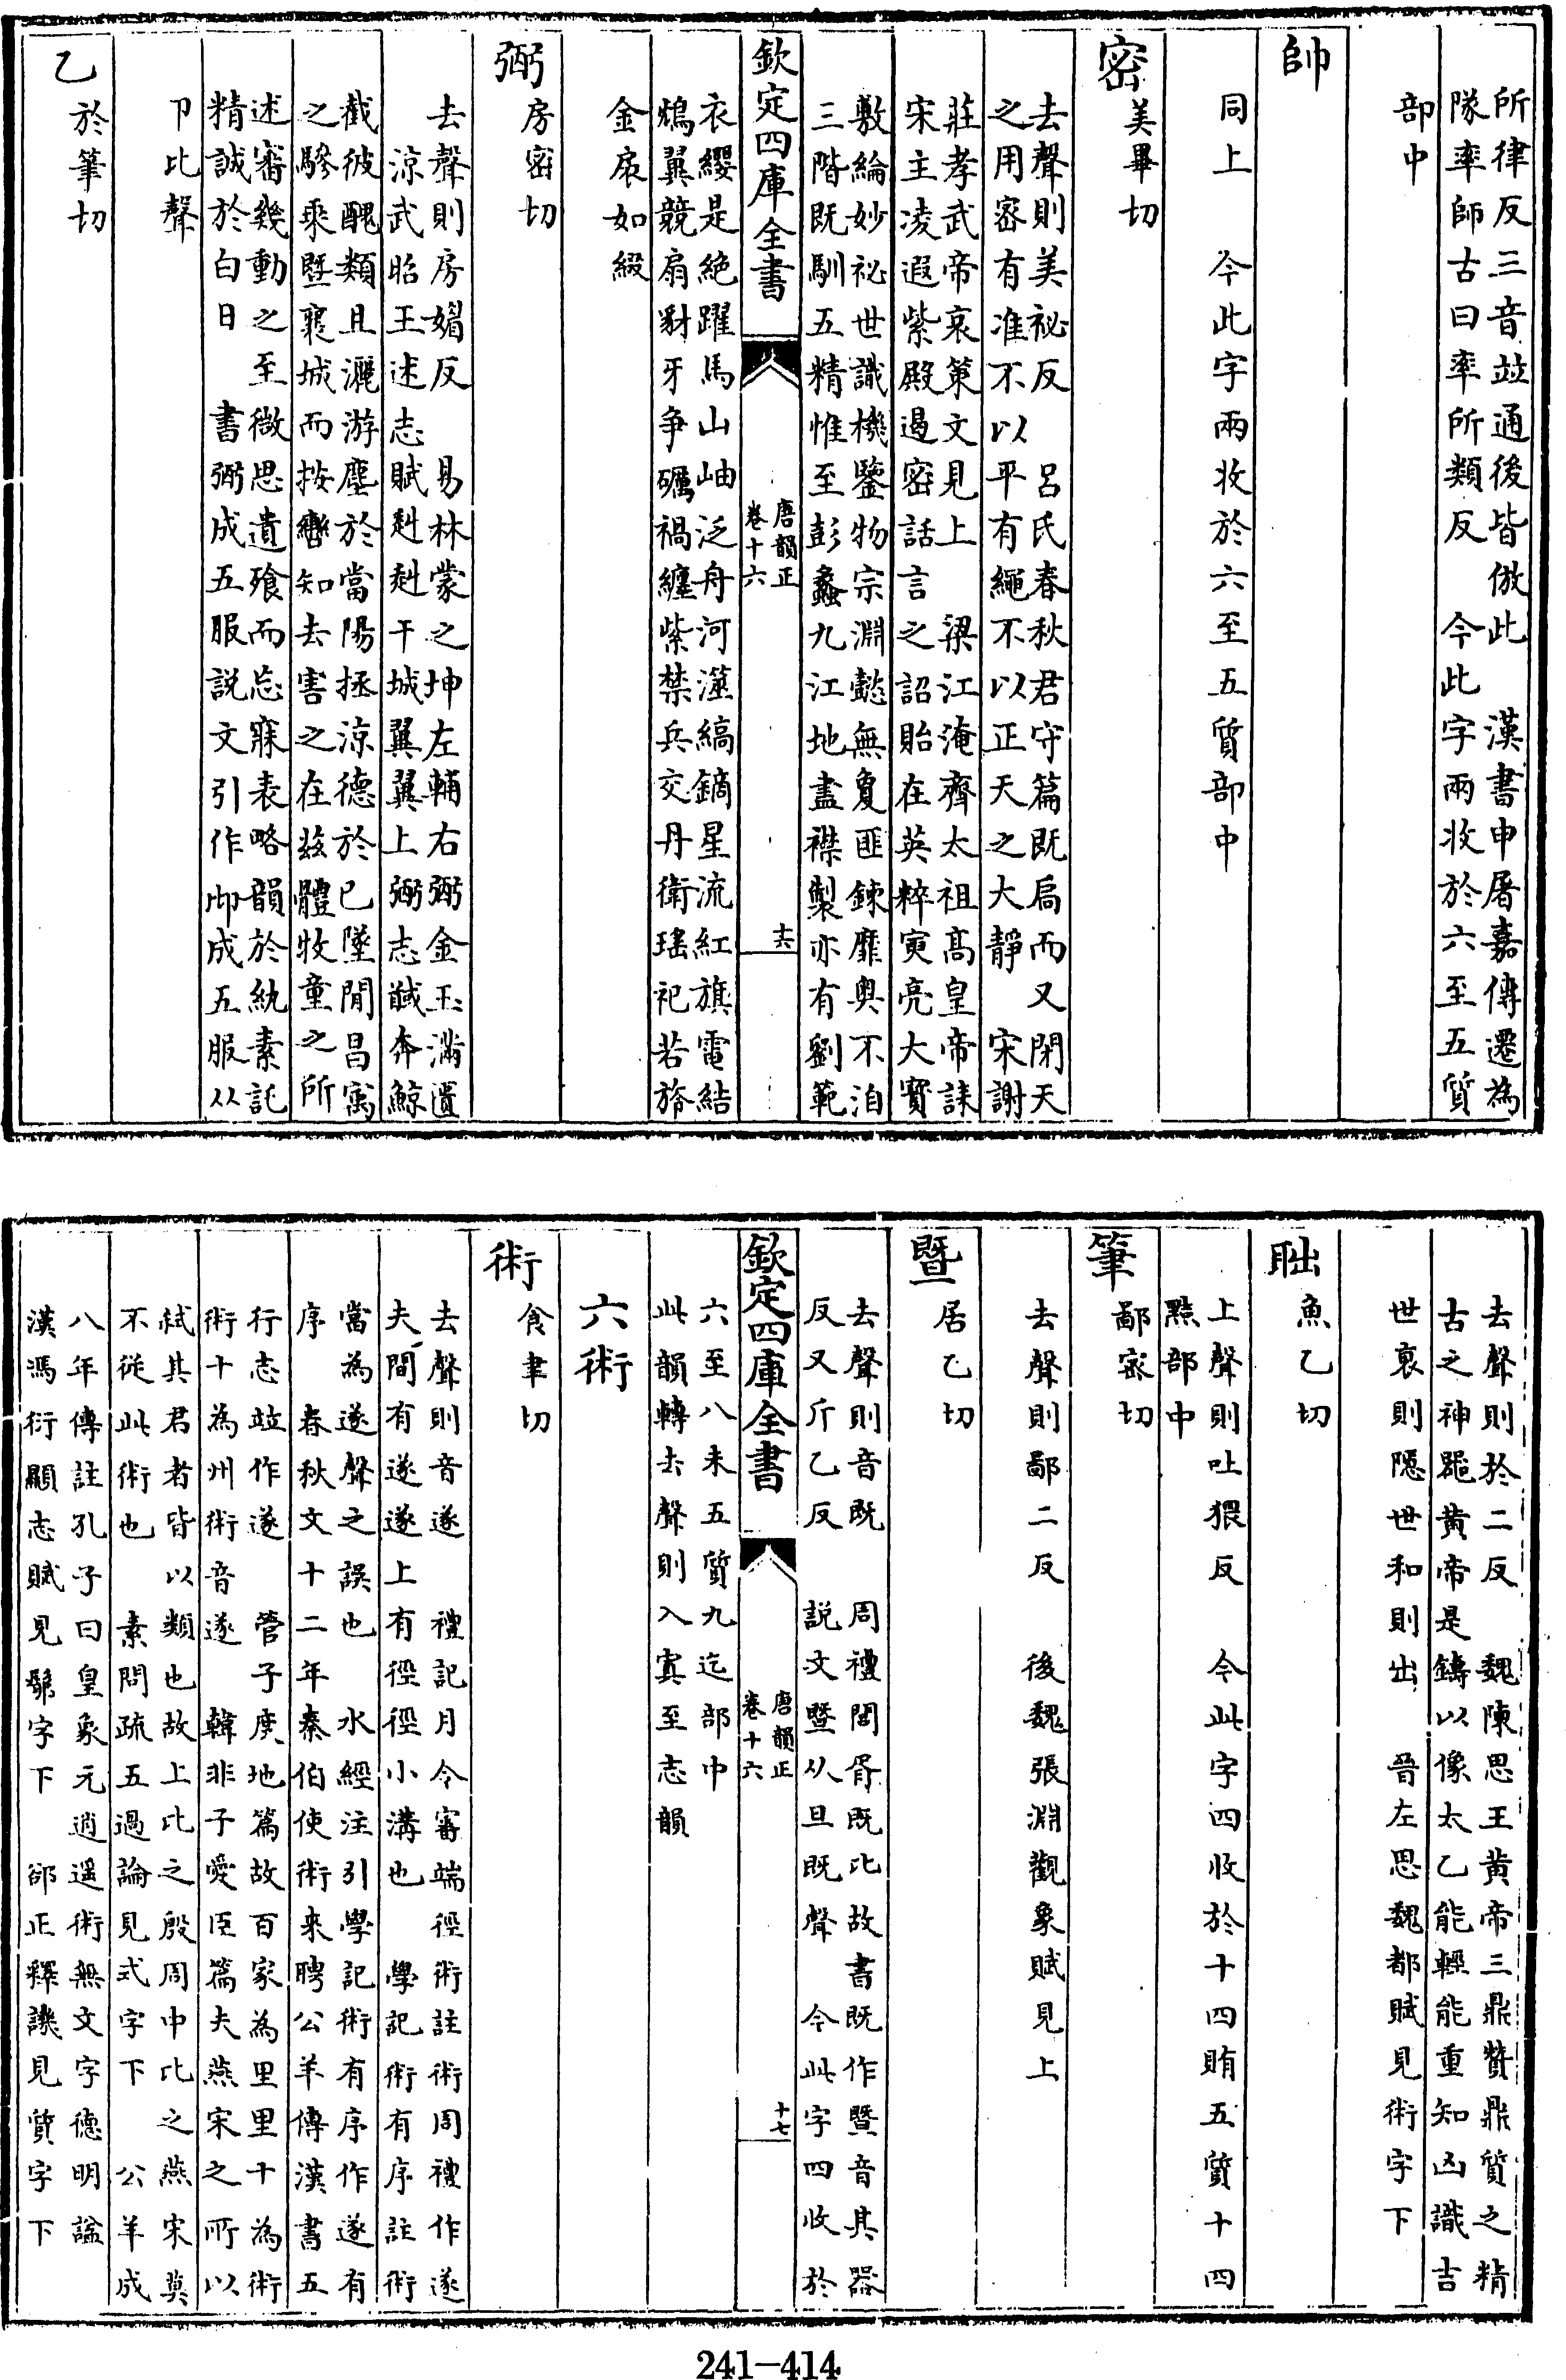 所律反三音竝通後皆倣此　漢書申屠嘉傳遷為
隊率師古曰率所類反　今此字兩收於六至五質
部中
帥
同上　今此字兩收於六至五質部中
密美畢切
去聲則美祕反　呂氏春秋君守篇既扃而又閉天
之用密有准不以平有繩不以正天之大靜　宋謝
莊孝武帝哀策文見上　梁江淹齊太祖高皇帝誄
宋主凌遐紫殿遏密話言之詔貽在英粹寅亮大寶
敷綸妙祕世識機鑒物宗淵懿無夐匪鍊靡奧不洎
三階既馴五精惟至彭蠡九江地盡襟製亦有劉範
欽定四庫全書
唐韻正
卷十六
十六
衣纓是絶躍馬山岫泛舟河澨縞鏑星流紅旗電結
鴆翼競扇豺牙争礪禍纏紫禁兵交丹衛瑤祀若旒
金扆如綴
弼房密切
去聲則房媚反　易林蒙之坤左輔右弼金玉滿匱
涼武昭王述志賦赳赳干城翼翼上弼志馘奔鯨
截彼醜類且灑游塵於當陽拯涼德於已墜間昌寓
之驂乘暨襄城而按轡知去害之在兹體牧童之所
述審幾動之至微思遺飱而忘寐表略韻於紈素託
精誠於白日　書弼成五服説文引作卲成五服从
卩比聲
乙於筆切
去聲則於二反　魏陳思王黄帝三鼎贊鼎質之精
古之神器黄帝是鑄以像太乙能輕能重知凶識吉
世衰則隱世和則出　晉左思魏都賦見術字下
聉魚乙切
上聲則吐猥反　今此字四收於十四賄五質十四
黠部中
筆鄙宻切
去聲則鄙二反　後魏張淵觀象賦見上
暨居乙切
去聲則音既　周禮閭胥既比故書既作暨音其器
反又斤乙反　説文暨从旦既聲　今此字四收於
欽定四庫全書
唐韻正
卷十六
十七
六至八未五質九迄部中
此韻轉去聲則入寘至志韻
六術
術食聿切
去聲則音遂　禮記月令審端徑術註術周禮作遂
夫間有遂遂上有徑徑小溝也　學記術有序註術
當為遂聲之誤也　水經注引學記術有序作遂有
序　春秋文十二年秦伯使術來聘公羊傳漢書五
行志竝作遂　管子度地篇故百家為里里十為術
術十為州術音遂　韓非子愛臣篇夫燕宋之所以
弑其君者皆以類也故上比之殷周中比之燕宋莫
不從此術也　素問疏五過論見式字下　公羊成
八年傳註孔子曰皇象元逍遥術無文字德明謚
漢馮衍顯志賦見髴字下　郤正釋譏見質字下
241-414